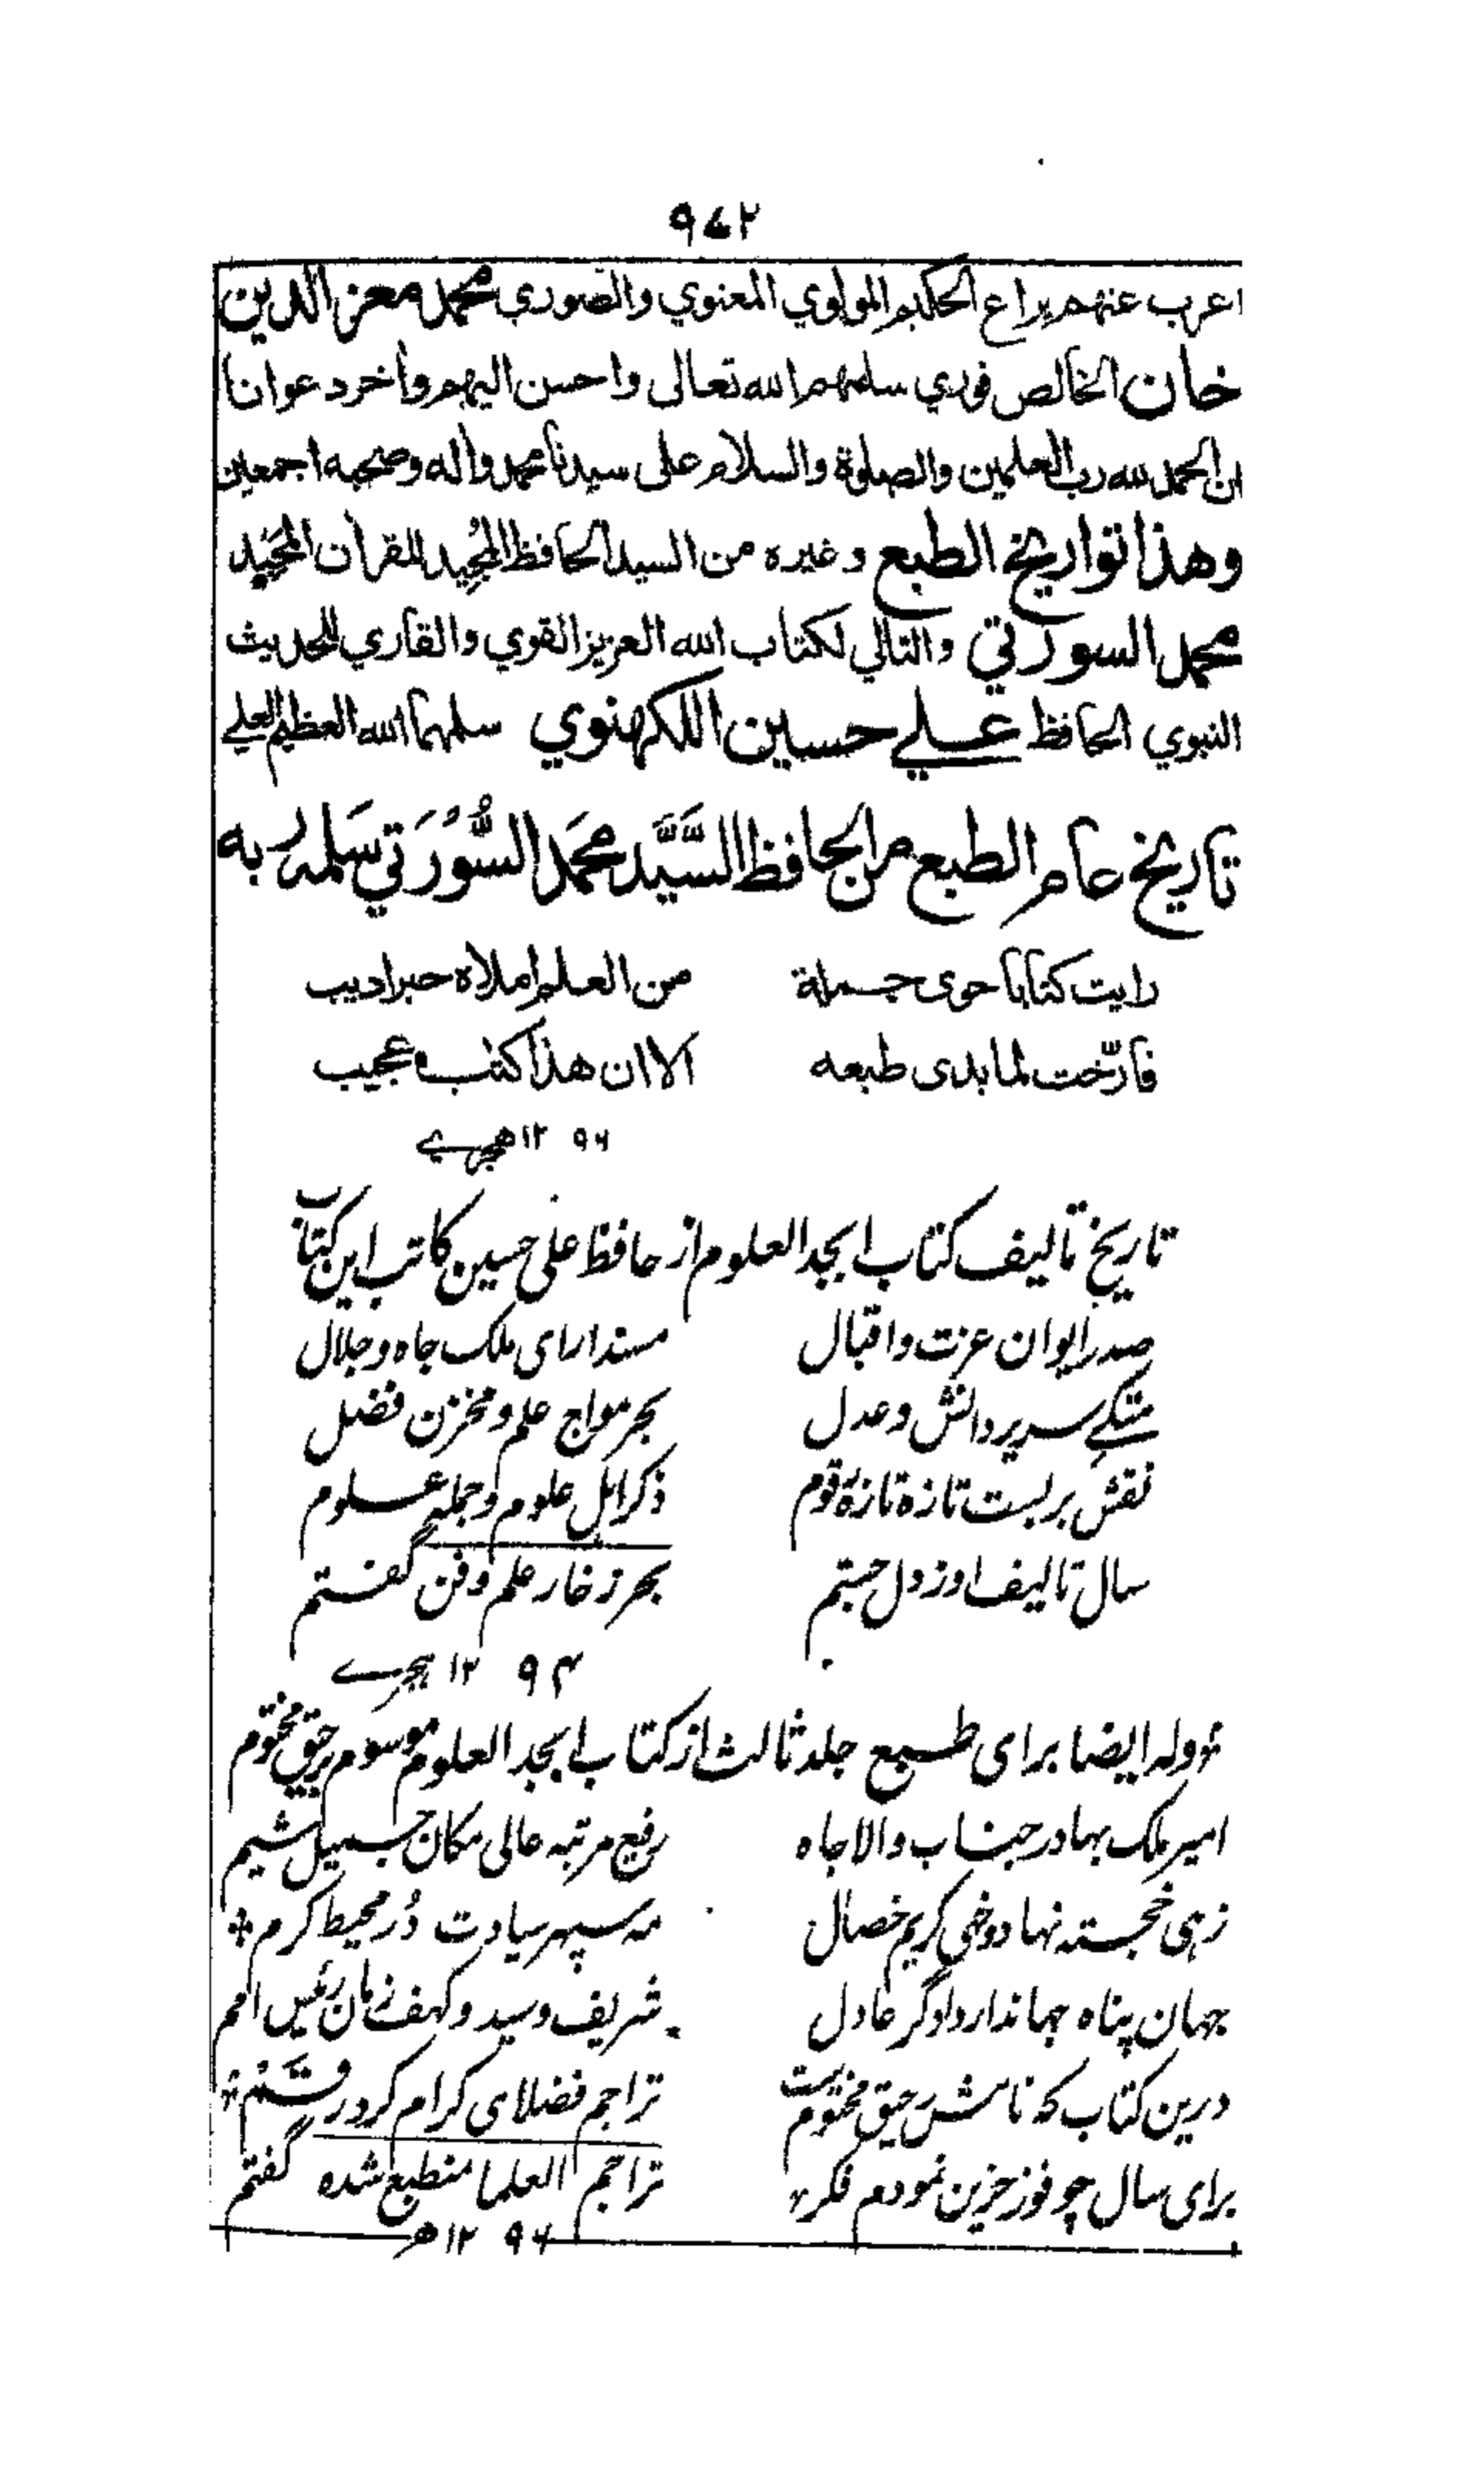 ۹۷۲
اعرب عنهم يراع الحكيم المولوي المعنوي والصوري محمد معز الدين
خان الخالص فوري سلمهم الله تعالى واحسن اليهم وأخر دعوانا
ان الحمد لله رب العلمين والصلوة والسلام على سيدنا محمد واله وصحبه اجمعين
وهذا تواريخ الطبع وغيره من السيد الحافظ المجيد للقران المجيد
محمد السورتي والتالي لكتاب الله العزيز القوي والقاري للحديث
النبوي الحافظ علي حسين اللكهنوي سلمهما الله العظيم العلي
تاريخ عام الطبع من الحافظ السَّيَّد محمَد السُّوُرَتي سَلمه ربه
رايت كتابا حوى جملة من العلم املاه حبر اديب
فارّخت لما بدى طبعه الا ان هذا كتب عجيب
۱۲۹۶ هجري
تاریخ تالیف کتاب ابجد العلوم از حافظ علی حسین کاتب این کتاب
صدر ایوان عزت و اقبال مسند ارای ملک جاه و جلال
متکے سریر دانش و عدل بحر مواج علم و مخزن فضل
نقش بر بست تازه تازۂ قوم ذکر اہل علوم و جملہ علوم
سال تالیف او ز دل جستم بحر زخار علم و فن گفتم
۱۲۹۴ ہجرے
وله ایضا برای طبع جلد ثالث از کتاب ابجد العلوم موسوم برحیق مختوم
امیر ملک بهادر جناب والاجاه رفیع مرتبه عالی مکان جمیل شیم
زہی خجسته نهاد و خہی کریم خصال مه سپهر سیادت دُر محیط کرم
جهان پناه جهاندار دادگر عادل شریف و سید و کهف زمان رئیس امم
درین کتاب که نامش رحیق مختوم ست تراجم فضلای کرام کرد رقم
برای سال چو فوز حزین نمودم فکر تراجم العلما منطبع شده گفتم
۱۲۹۶ ھ